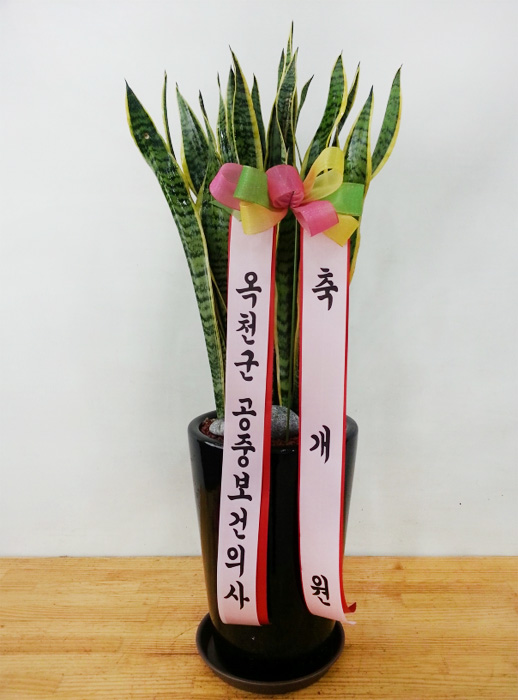 옥천군 공중보건의사
축 개 원